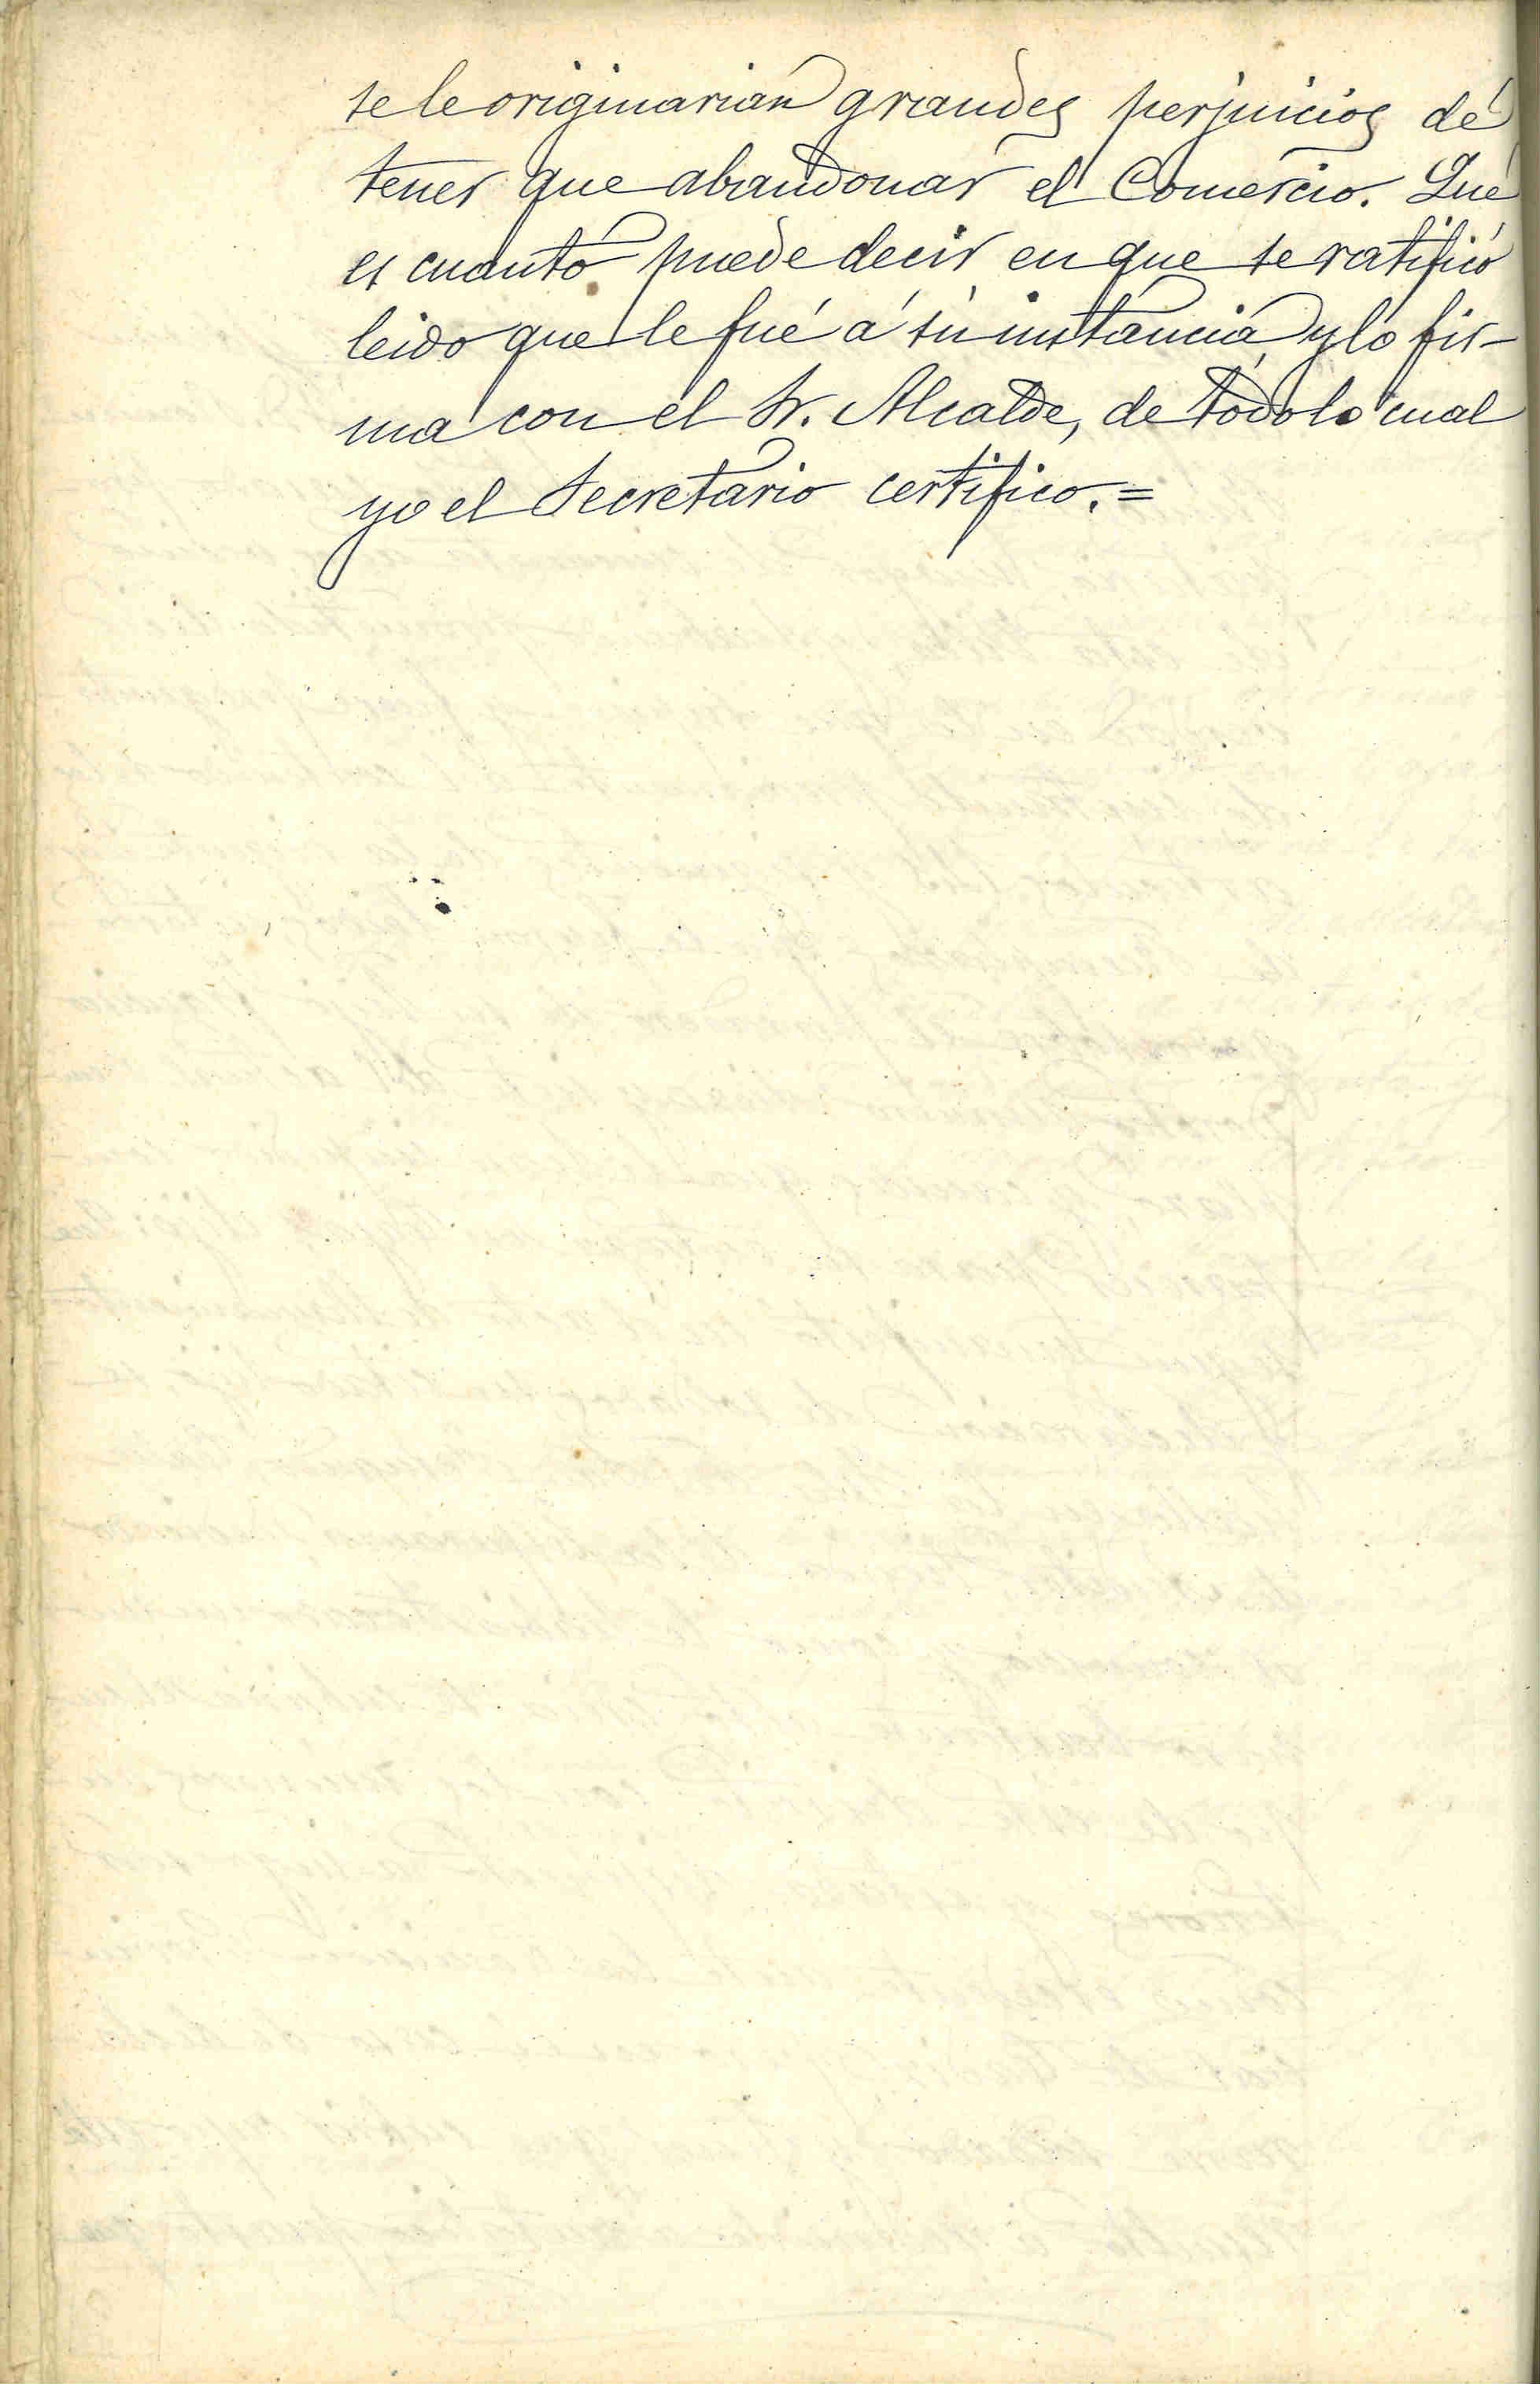 se le originarian grandes perjuicios de
tener que abandonar el Comercio. Que
es cuanto puede decir en que se ratificó
leido que le fué á su instancia, y lo fir-
ma con el Sr. Alcalde, de todo lo cual
yo el Secretario certifico.=